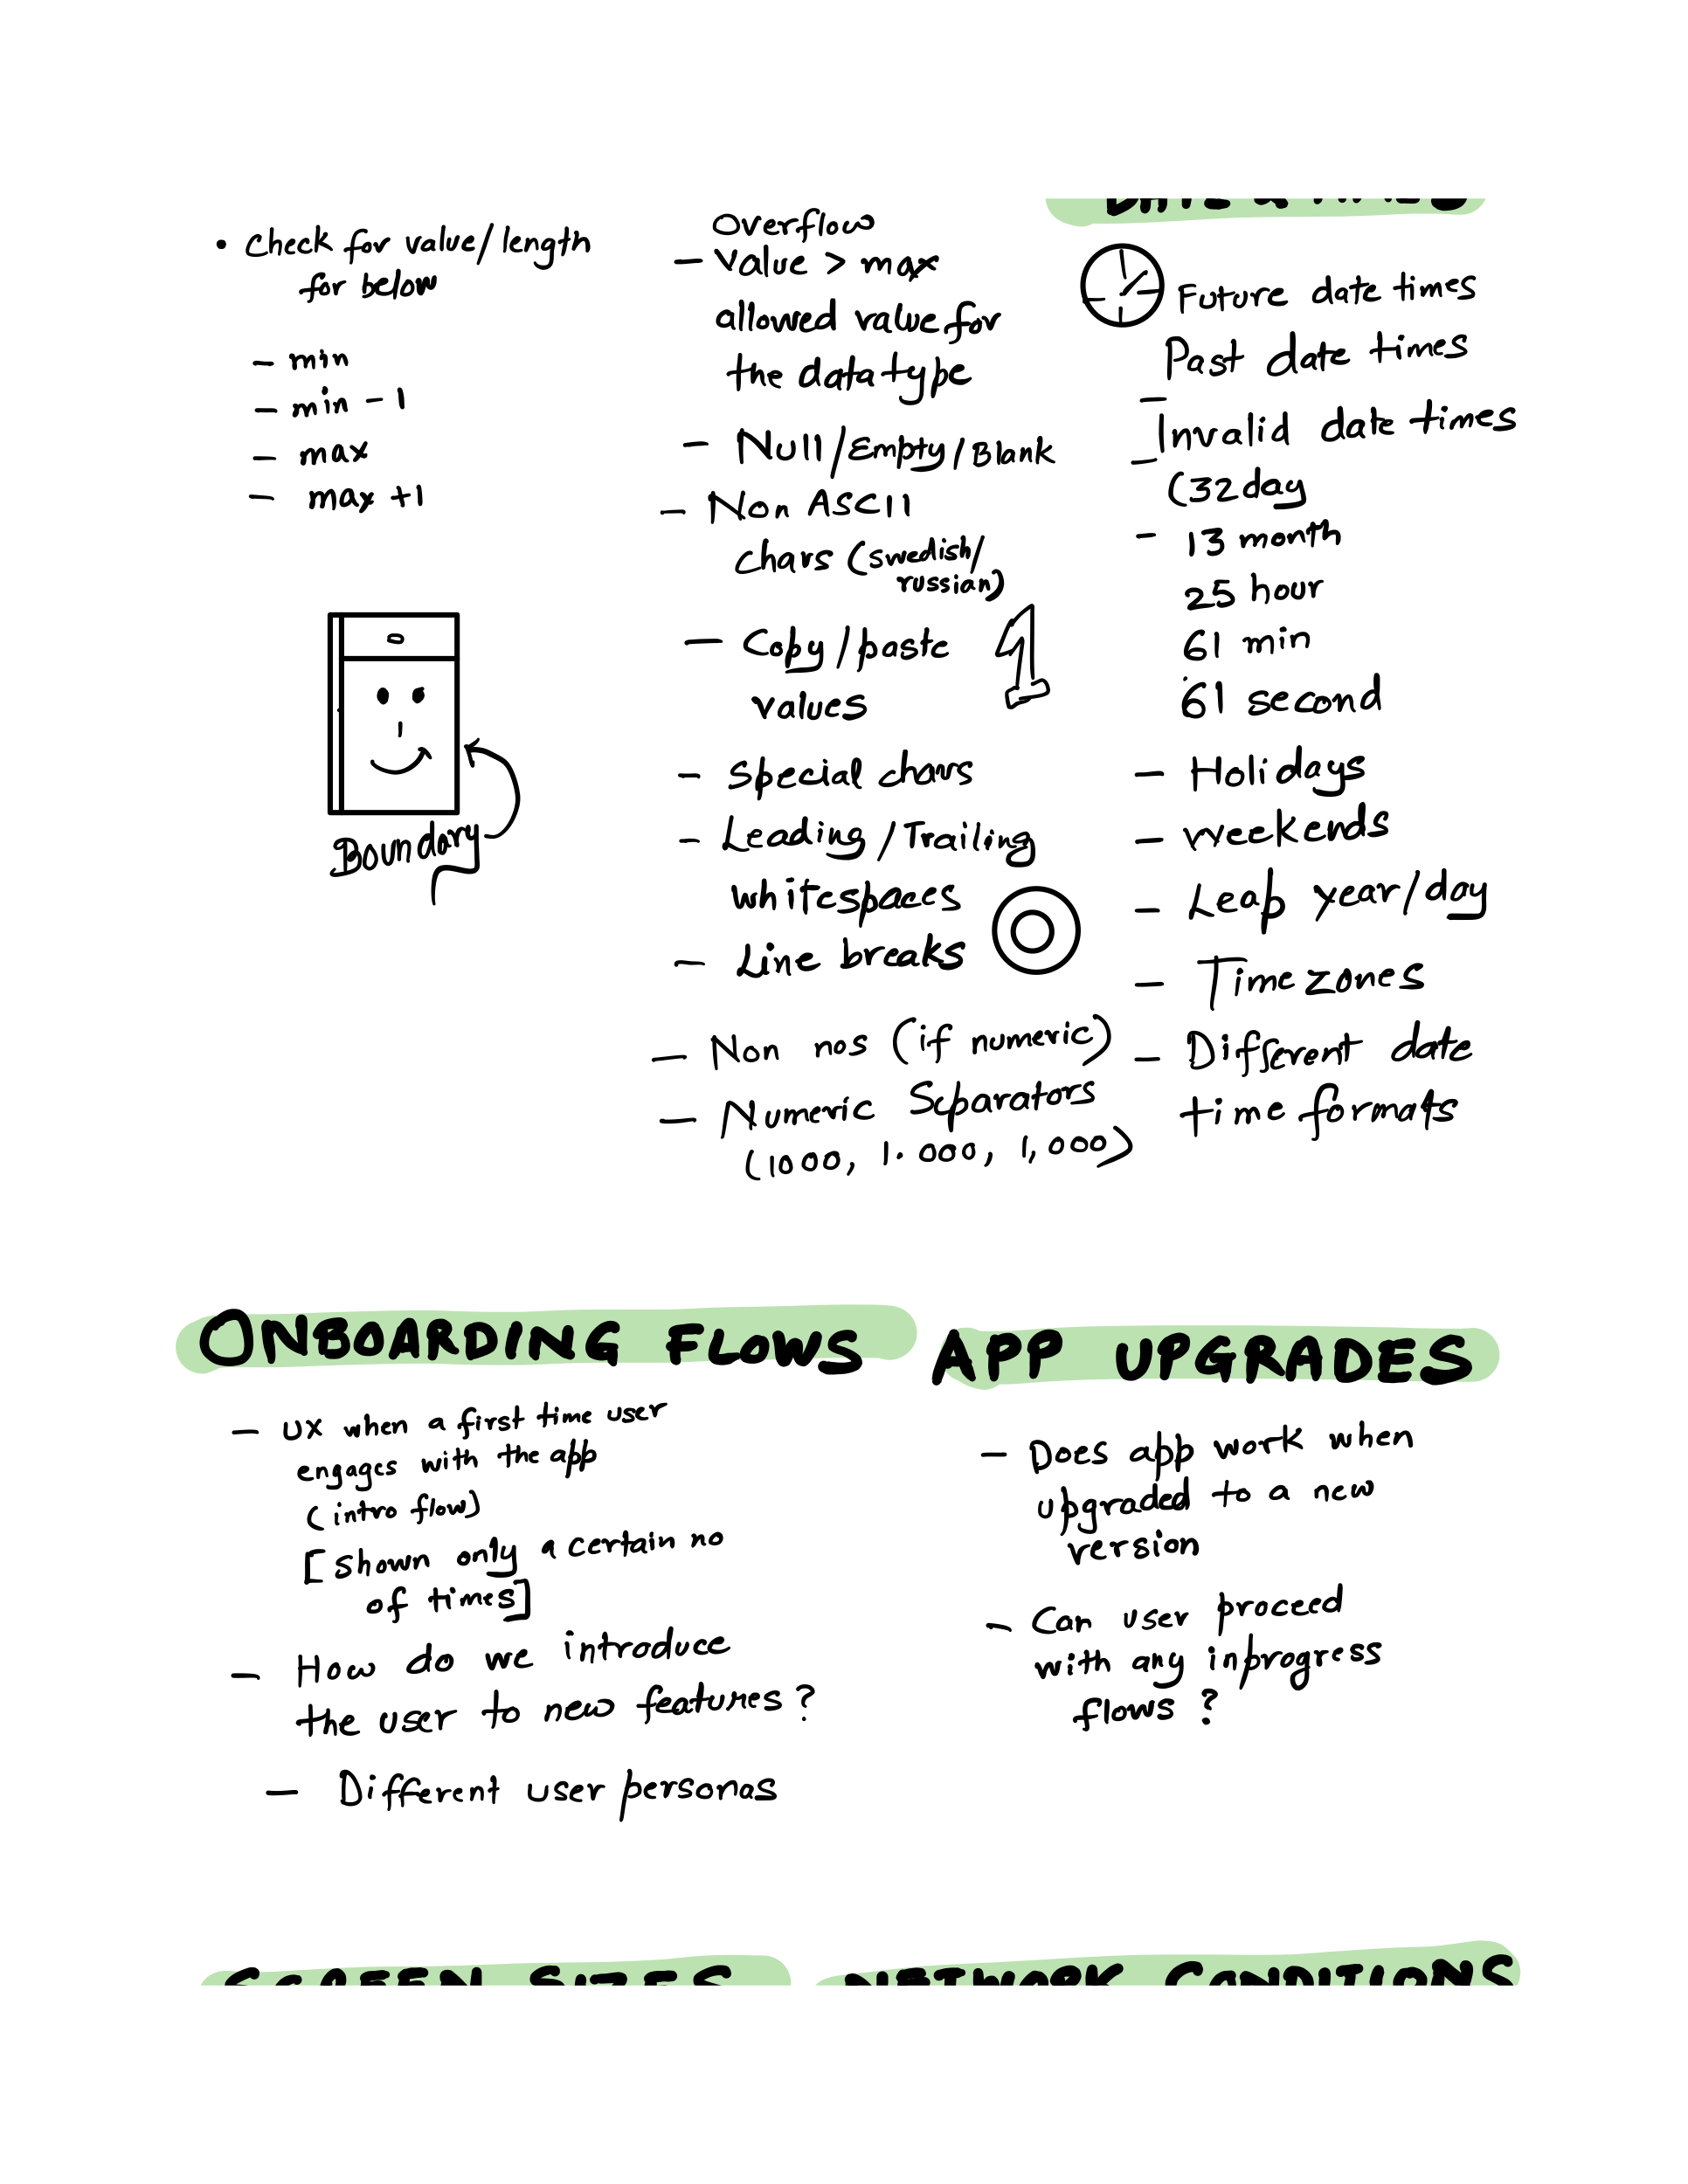 • Check for value/length
for below
- min
- min - 1
- max
- max +1
Boundary
Overflow
- Value > max
allowed value for
the data type
- Null/Empty/Blank
- Non ASCII
chars (swedish/
russian)
- Copy/paste
values
1
- Special chars
- Leading/Trailing
whitespaces
- Line breaks
- Non nos (if numeric)
- Numeric Separators
(1000, 1.000, 1,000)
Future date times
Past date times
- Invalid date times
- (32 day
- 13 month
25 hour
61 min
61 second
- Holidays
- weekends
- Leap year/day
- Time zones
- Different date
time formats
ONBOARDING FLOWS
- UX when a first time user
engages with the app
(intro flow)
[Shown only a certain no
of times]
- How do we introduce
the user to new features?
- Different user personas
APP UPGRADES
- Does app work when
upgraded to a new
version
- Can user proceed
with any inprogress
flows?
SCREEN SIZES
NETWORK CONDITIONS